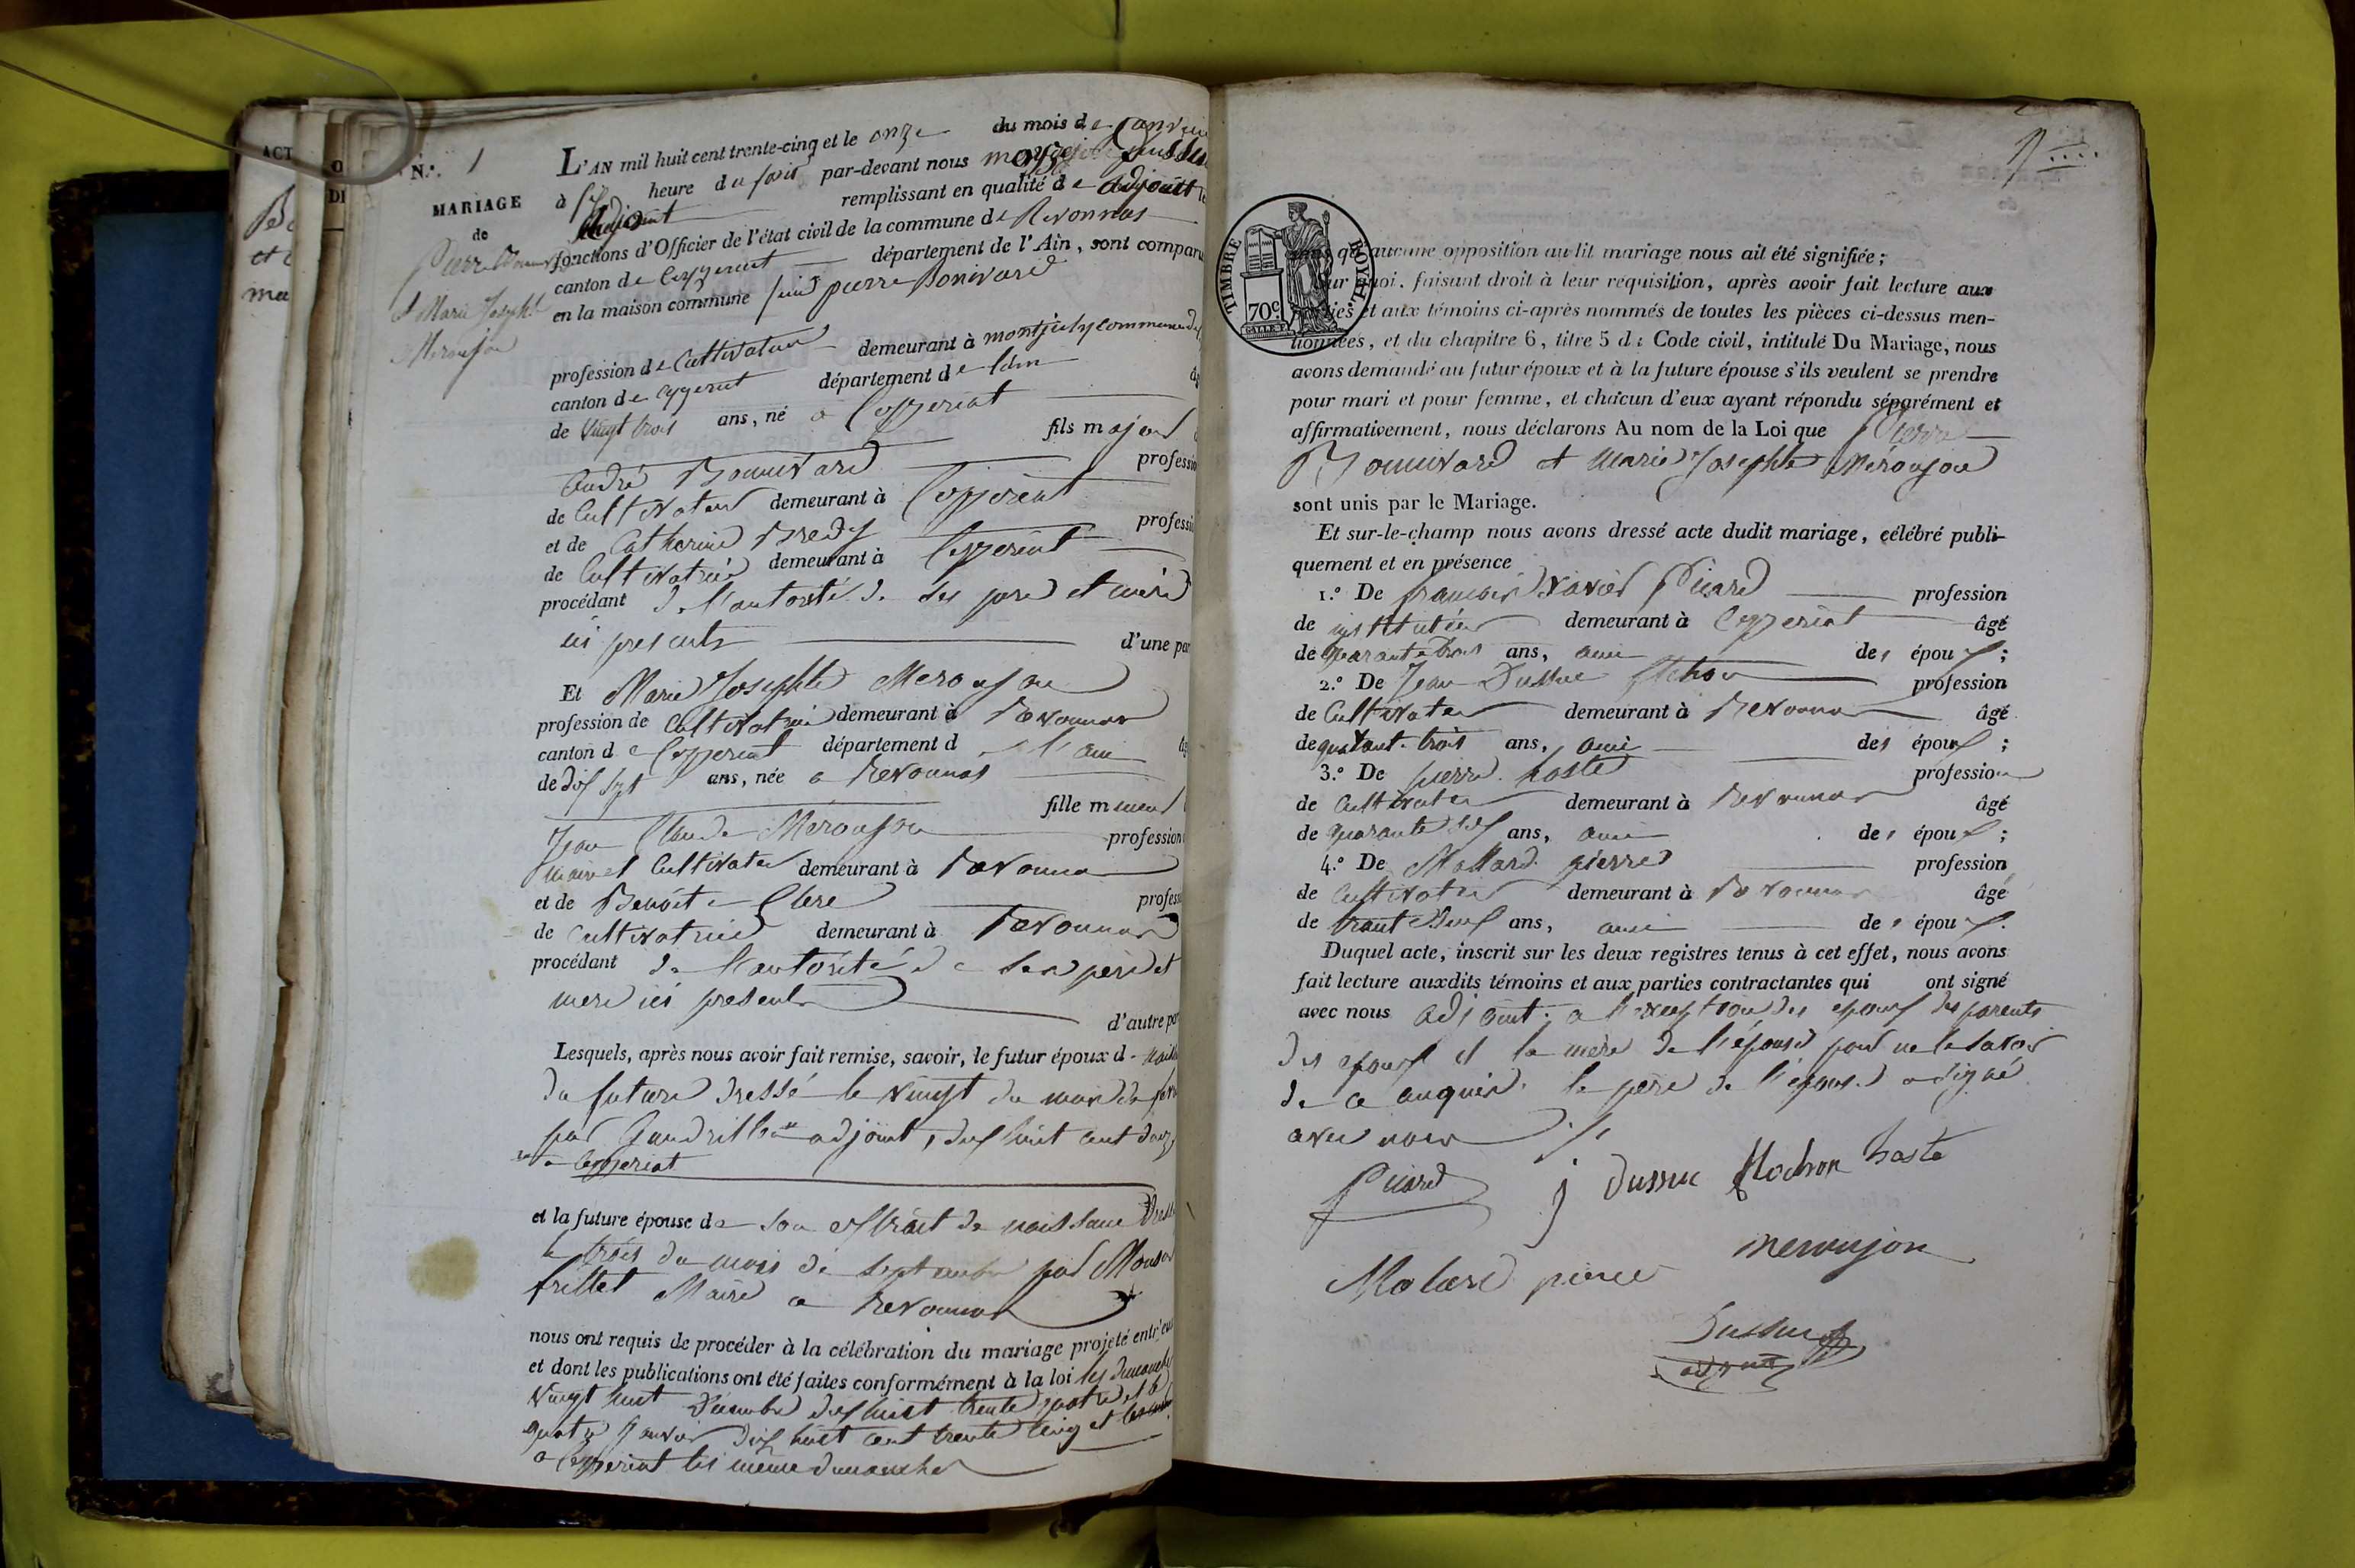 ACT
O
DI
N.º 1
MARIAGE
de
Pierre Bonnivard
et Marie Josephte
Meroujon
L'AN mil huit cent trente-cinq et le onze du mois de Janvier
à heure du soir par-devant nous
adjoint remplissant en qualité de adjoint
fonctions d'Officier de l'état civil de la commune de Revonnas
canton de Ceyzeriat département de l'Ain, sont comparu
en la maison commune pierre Bonivard
profession de Cultivateur demeurant à montjuly commune de
canton de Ceyzeriat département de l'ain
de vingt trois ans, né a Ceyzeriat
fils majeur
André Bonnivard professio
de Cultivateur demeurant à Ceyzeriat
et de Catherine Bredy professi
de Cultivatrice demeurant à Ceyzeriat
procédant de l'autorité de ses pere et mere
ici presents d'une par
Et Marie Josephte Meroujon
profession de Cultivatrice demeurant à Revonnas
canton de Ceyzeriat département de l'ain
de dix sept ans, née a Revonnas
fille mineur
Jean Claude Méroujon profession
maire et Cultivateur demeurant à Revonnas
et de Benoite Clere profess
de Cultivatrice demeurant à Revonnas
procédant de l'autorité de ses père et
mere ici presents
d'autre par
Lesquels, après nous avoir fait remise, savoir, le futur époux d
du future dressé le vingt du mois de
par adjoint, dix huit cent douze
a Ceyzeriat
et la future épouse de son extrait de naissance
le trois du mois de septembre par
frillet Maire a Revonnas
nous ont requis de procéder à la célébration du mariage projeté entr'eux
et dont les publications ont été faites conformément à la loi les dimanches
vingt huit Décembre dix huit trente quatre et le
quatre Janvier dix huit cent trente cinq et
a Ceyzeriat les même dimanches
1
TIMBRE ROYAL
70c
sans qu'aucune opposition audit mariage nous ait été signifiée;
Sur quoi, faisant droit à leur réquisition, après avoir fait lecture aux
parties et aux témoins ci-après nommés de toutes les pièces ci-dessus men-
tionnées, et du chapitre 6, titre 5 du Code civil, intitulé Du Mariage, nous
avons demandé au futur époux et à la future épouse s'ils veulent se prendre
pour mari et pour femme, et chacun d'eux ayant répondu séparément et
affirmativement, nous déclarons Au nom de la Loi que Pierre
Bonnivard et Marie Josephte Méroujon
sont unis par le Mariage.
Et sur-le-champ nous avons dressé acte dudit mariage, célébré publi-
quement et en présence
1.º De françois Xavier Picard profession
de instituteur demeurant à Ceyzeriat âgé
de quarante trois ans, ami des époux;
2.º De Jean Dussuc profession
de Cultivateur demeurant à Revonnas âgé
de quarante trois ans, ami des époux;
3.º De pierre hoste profession
de Cultivateur demeurant à Revonnas âgé
de quarante six ans, ami des époux;
4.º De Mollard pierre profession
de Cultivateur demeurant à Revonnas âgé
de trente deux ans, ami des époux.
Duquel acte, inscrit sur les deux registres tenus à cet effet, nous avons
fait lecture auxdits témoins et aux parties contractantes qui ont signé
avec nous adjoint. a l'exception des epoux des parents
des epoux et la mère de l'épouse pour ne le savoir
de ce enquis. le père de l'épouse a signé
avec nous
Picard j Dussuc Mochon hoste
Molard pierre meroujon
Dussuc
adjoint